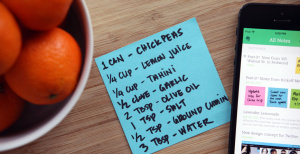 1 CAN - CHICKPEAS
1/4 CUP - LEMON JUICE
1/4 CUP - TAHINI
1/2 CLOVE - GARLIC
2 TBSP - OLIVE OIL
1 TSP - SALT
1/2 TSP - GROUND CUMIN
3 TBSP - WATER
All Notes